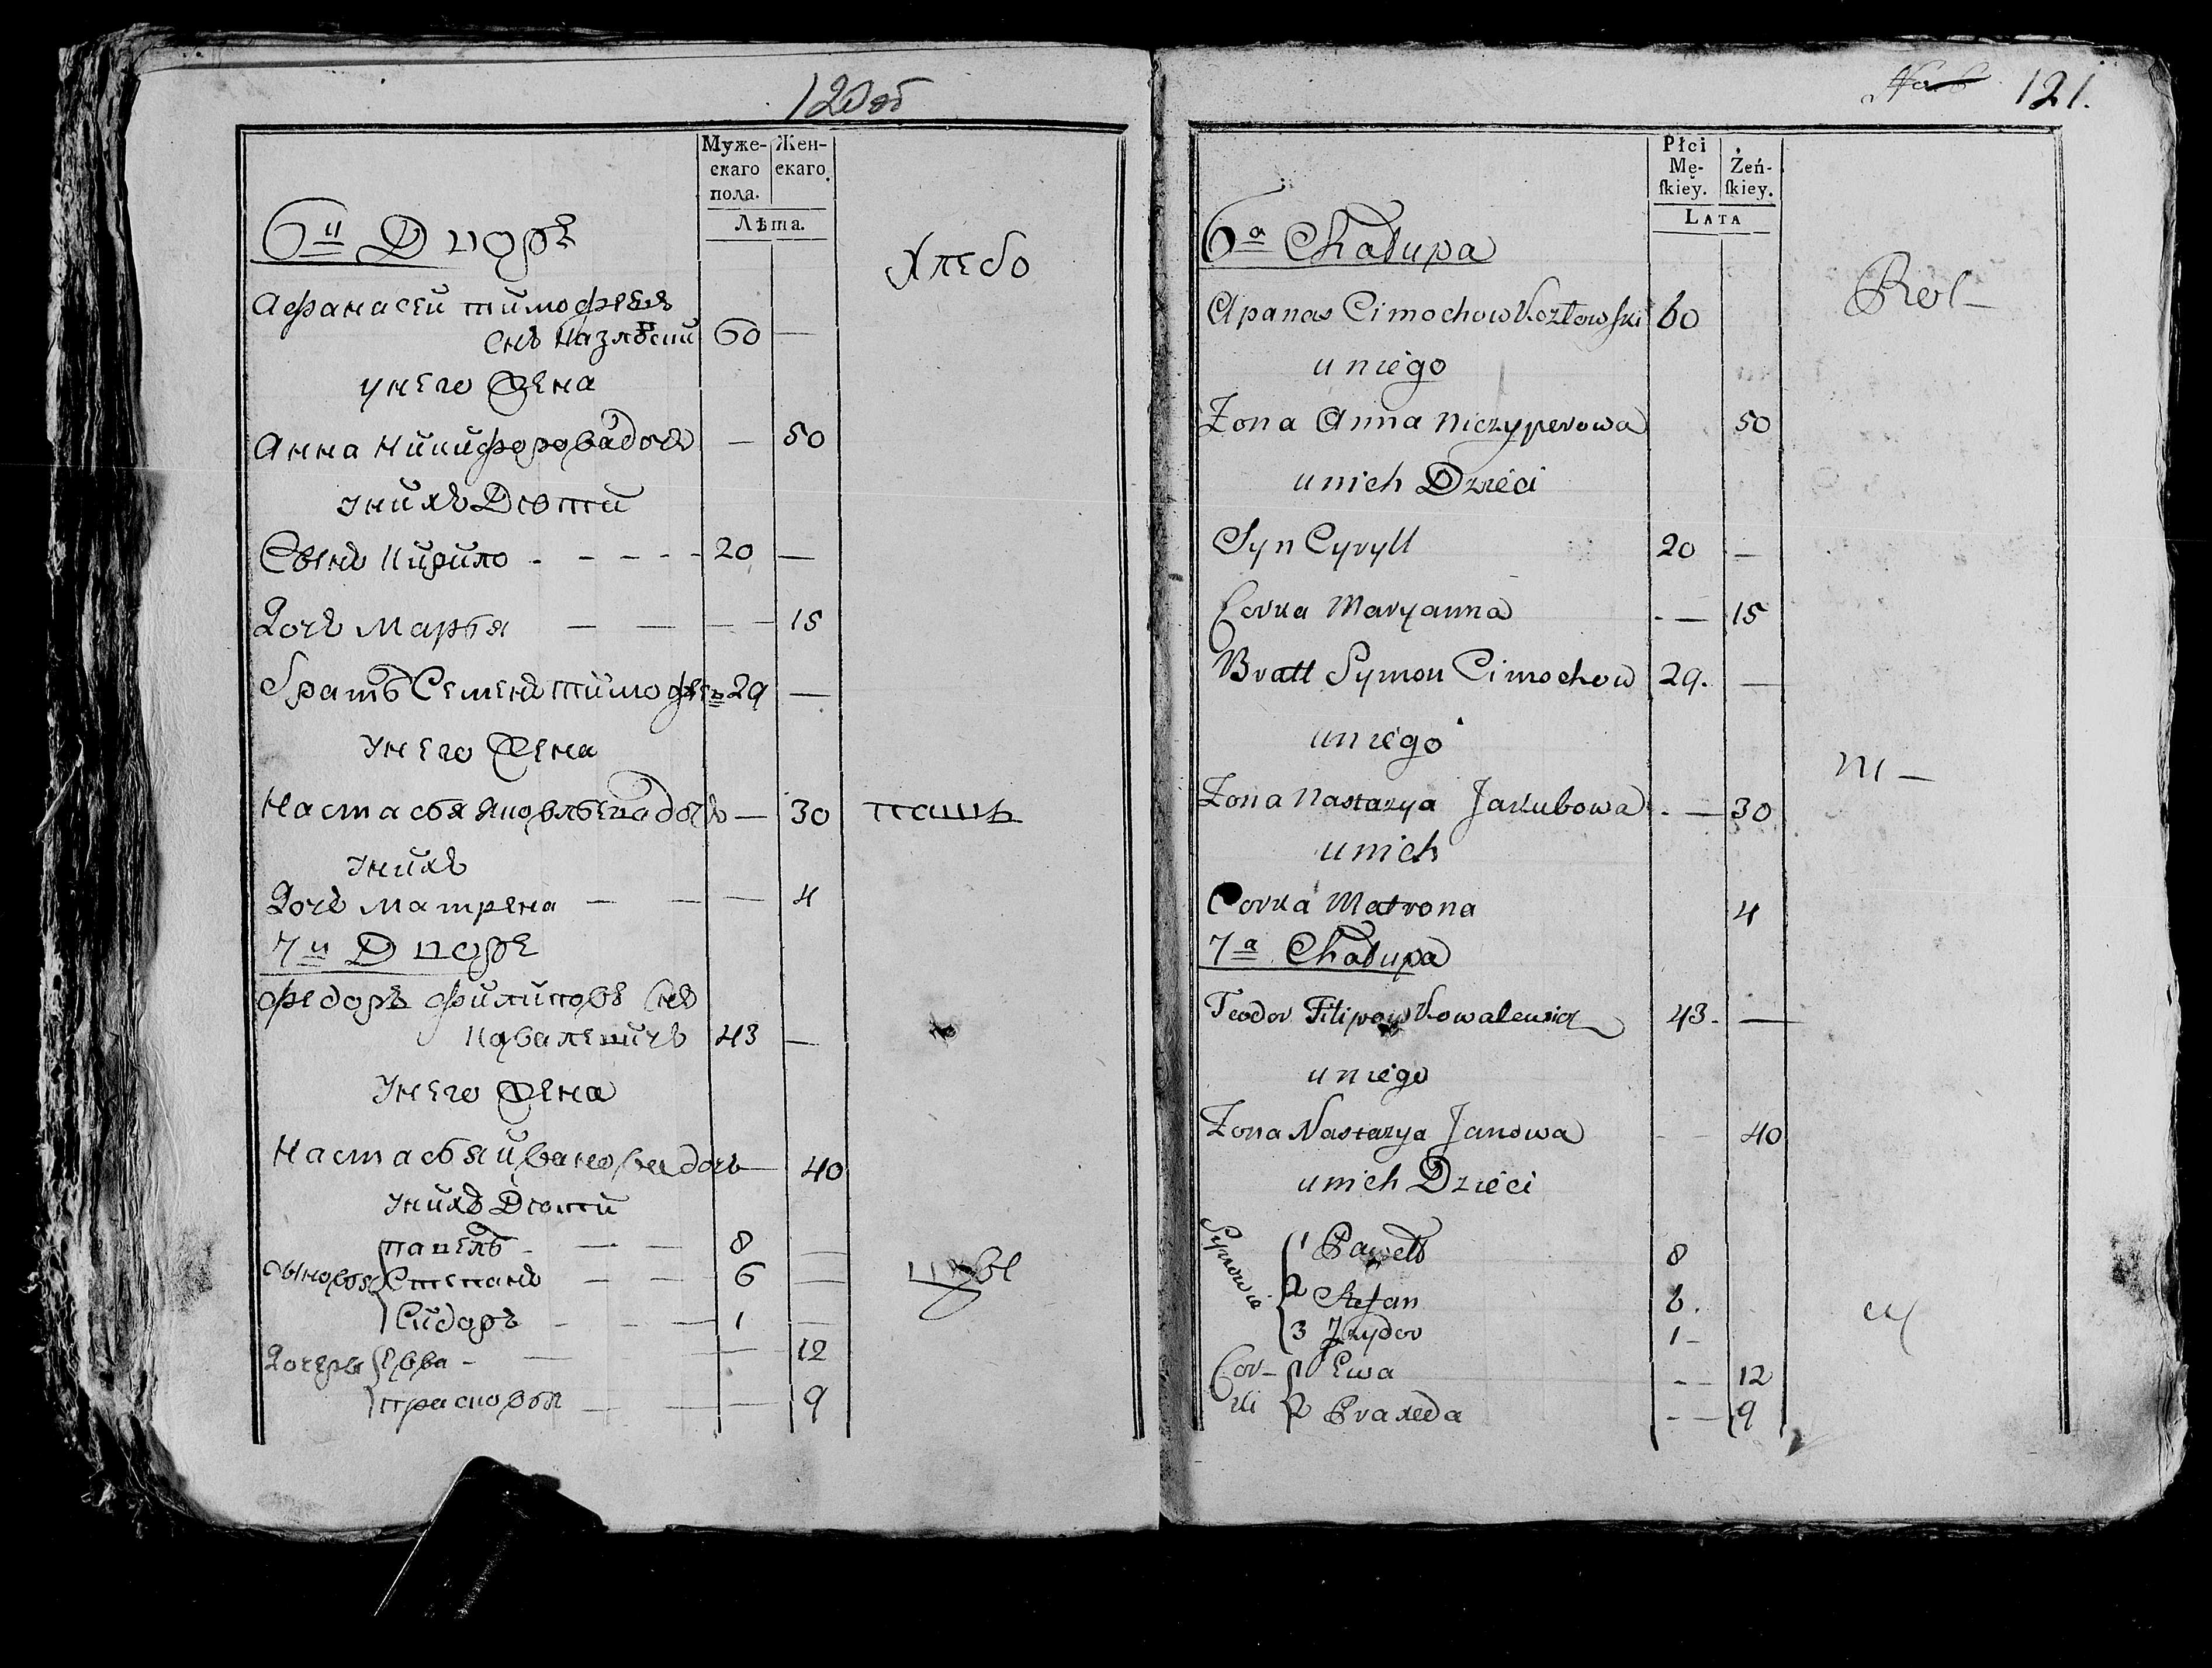 120 об
Муже-
скаго
пола.
Жен-
скаго.
Лѣта.
6й Дворъ
Хлебо
Афанасей тимофеевъ
снъ Казловский 60 —
унего Жена
Анна Никифорова дочь — 50
унихъ Дѣти
Сынъ Кирило - - - - - 20 —
Дочь Марья — — — — 15
братъ Семенъ тимофеев 29 —
унего Жена
Настасья Яковлева дочь — 30 паше
унихъ
Дочь матрена — — — 4
7й Дворъ
федоръ филиповъ снъ
Ковалевичъ 43 —
унего Жена
Настасья иванова дочь — 40
унихъ Дѣти
павелъ - — — 8 —
Сыновья Степанъ — — 6 — цы
Сидоръ - - — 1 —
Дочеры Евва - — — 12
прасковья — — — 9
121.
Płci
Mę-
ſkiey.
Żeń-
ſkiey.
LATA
6a Chałupa
Rol-
Apanas Cimochow Kozłowski 60
u niego
Żona Anna Niczyperowa 50
u nich Dzieci
Syn Cyryll 20 —
Corka Maryanna - — 15
Bratt Symon Cimochow 29. —
u niego
ni —
Żona Nastazya Jakubowa - — 30
u nich
Corka Matrona 4
7a Chałupa
Teodor Filipow Kowalewicz 43. —
u niego
Żona Nastazya Janowa - - 40
u nich Dzieci
Synowie 1 Paweł 8
2 Stefan 6.
3 Jzydor 1 -
cy
Cor- 1 Ewa - — 12
ki 2 Praxeda - — 9